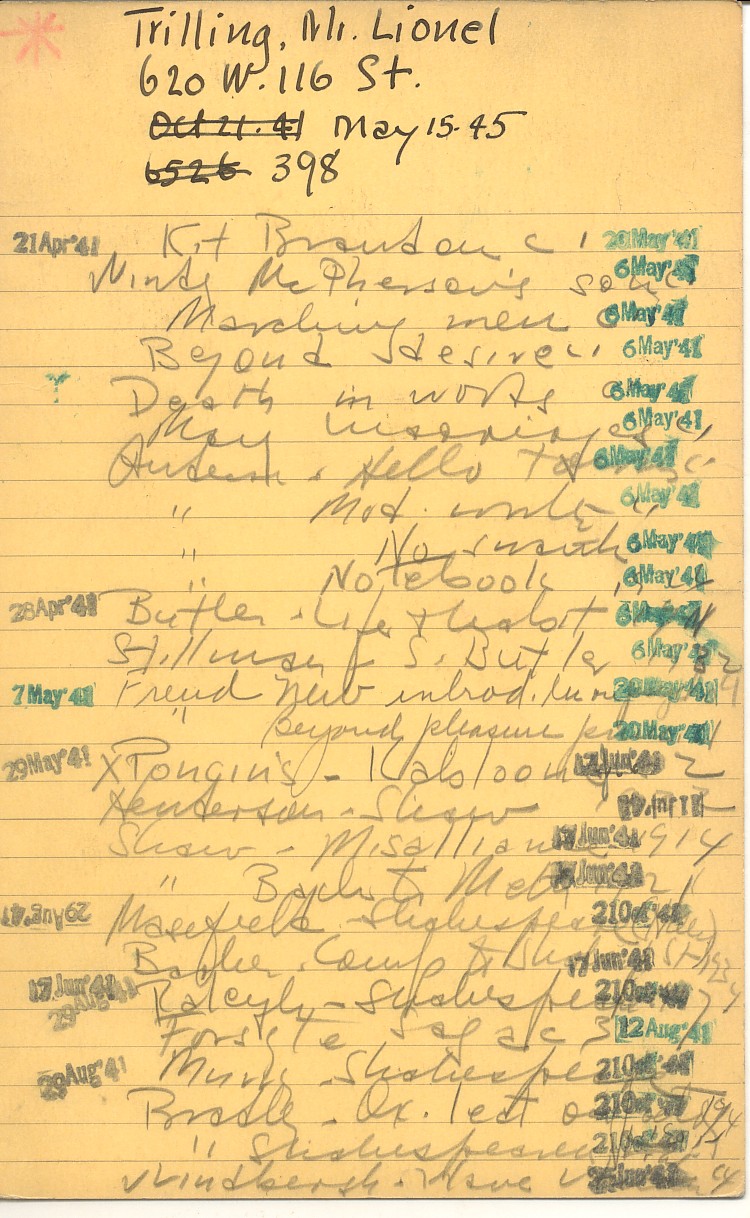 Trilling, Mr. Lionel
620 W. 116 St.
Oct 21. 41 May 15. 45
6526 398
21Apr'41 Kit Brandon c 1 20May'41
Windy McPherson's son c 6May'41
Marching men c 6May'41
Beyond desire c 1 6May'41
Death in woods c 6May'41
Many marriages c 1 6May'41
Anderson. Hello Towns c 6May'41
" Mod. writer c 6May'41
" No swank 6May'41
" Notebook 6May'41
28Apr'41 Butler. Life & habit 6May'41
Stillman S. Butler 6May'41
7May'41 Freud New introd. 20May'41
" Beyond pleasure 20May'41
29May'41 X Poncin's - Kabloona 17Jun'41
Henderson - Shaw 17Jun'41
Shaw - Misalliance 1914 17Jun'41
" Back to Meth 1921 17Jun'41
29Aug'41 Masefield. Shakespeare 21Oct'41
Baker. Comp to Shakes 17Jun'41
17Jun'41 29Aug'41 Raleigh - Shakespeare 21Oct'41
Forsyte Saga c 3 12Aug'41
29Aug'41 Shakespeare 21Oct'41
Bradley - Ox. lect on 21Oct'41
" Shakespearean 21Oct'41